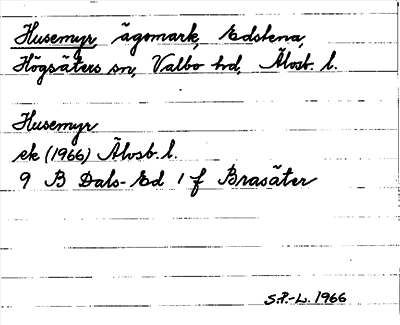 Husemyr, ägomark, Edstena,
Högsäters sn, Valbo hd, Älvsb. l.
Husemyr
ek (1966) Älvsb. l.
9 B Dals-Ed 1 f Brasäter
S.P.-L. 1966